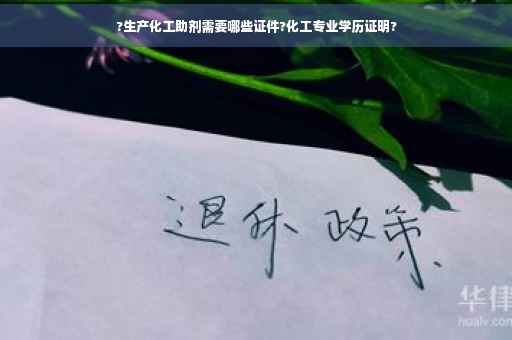 ?生产化工助剂需要哪些证件?化工专业学历证明?
退休 政策
华律
hualv.com